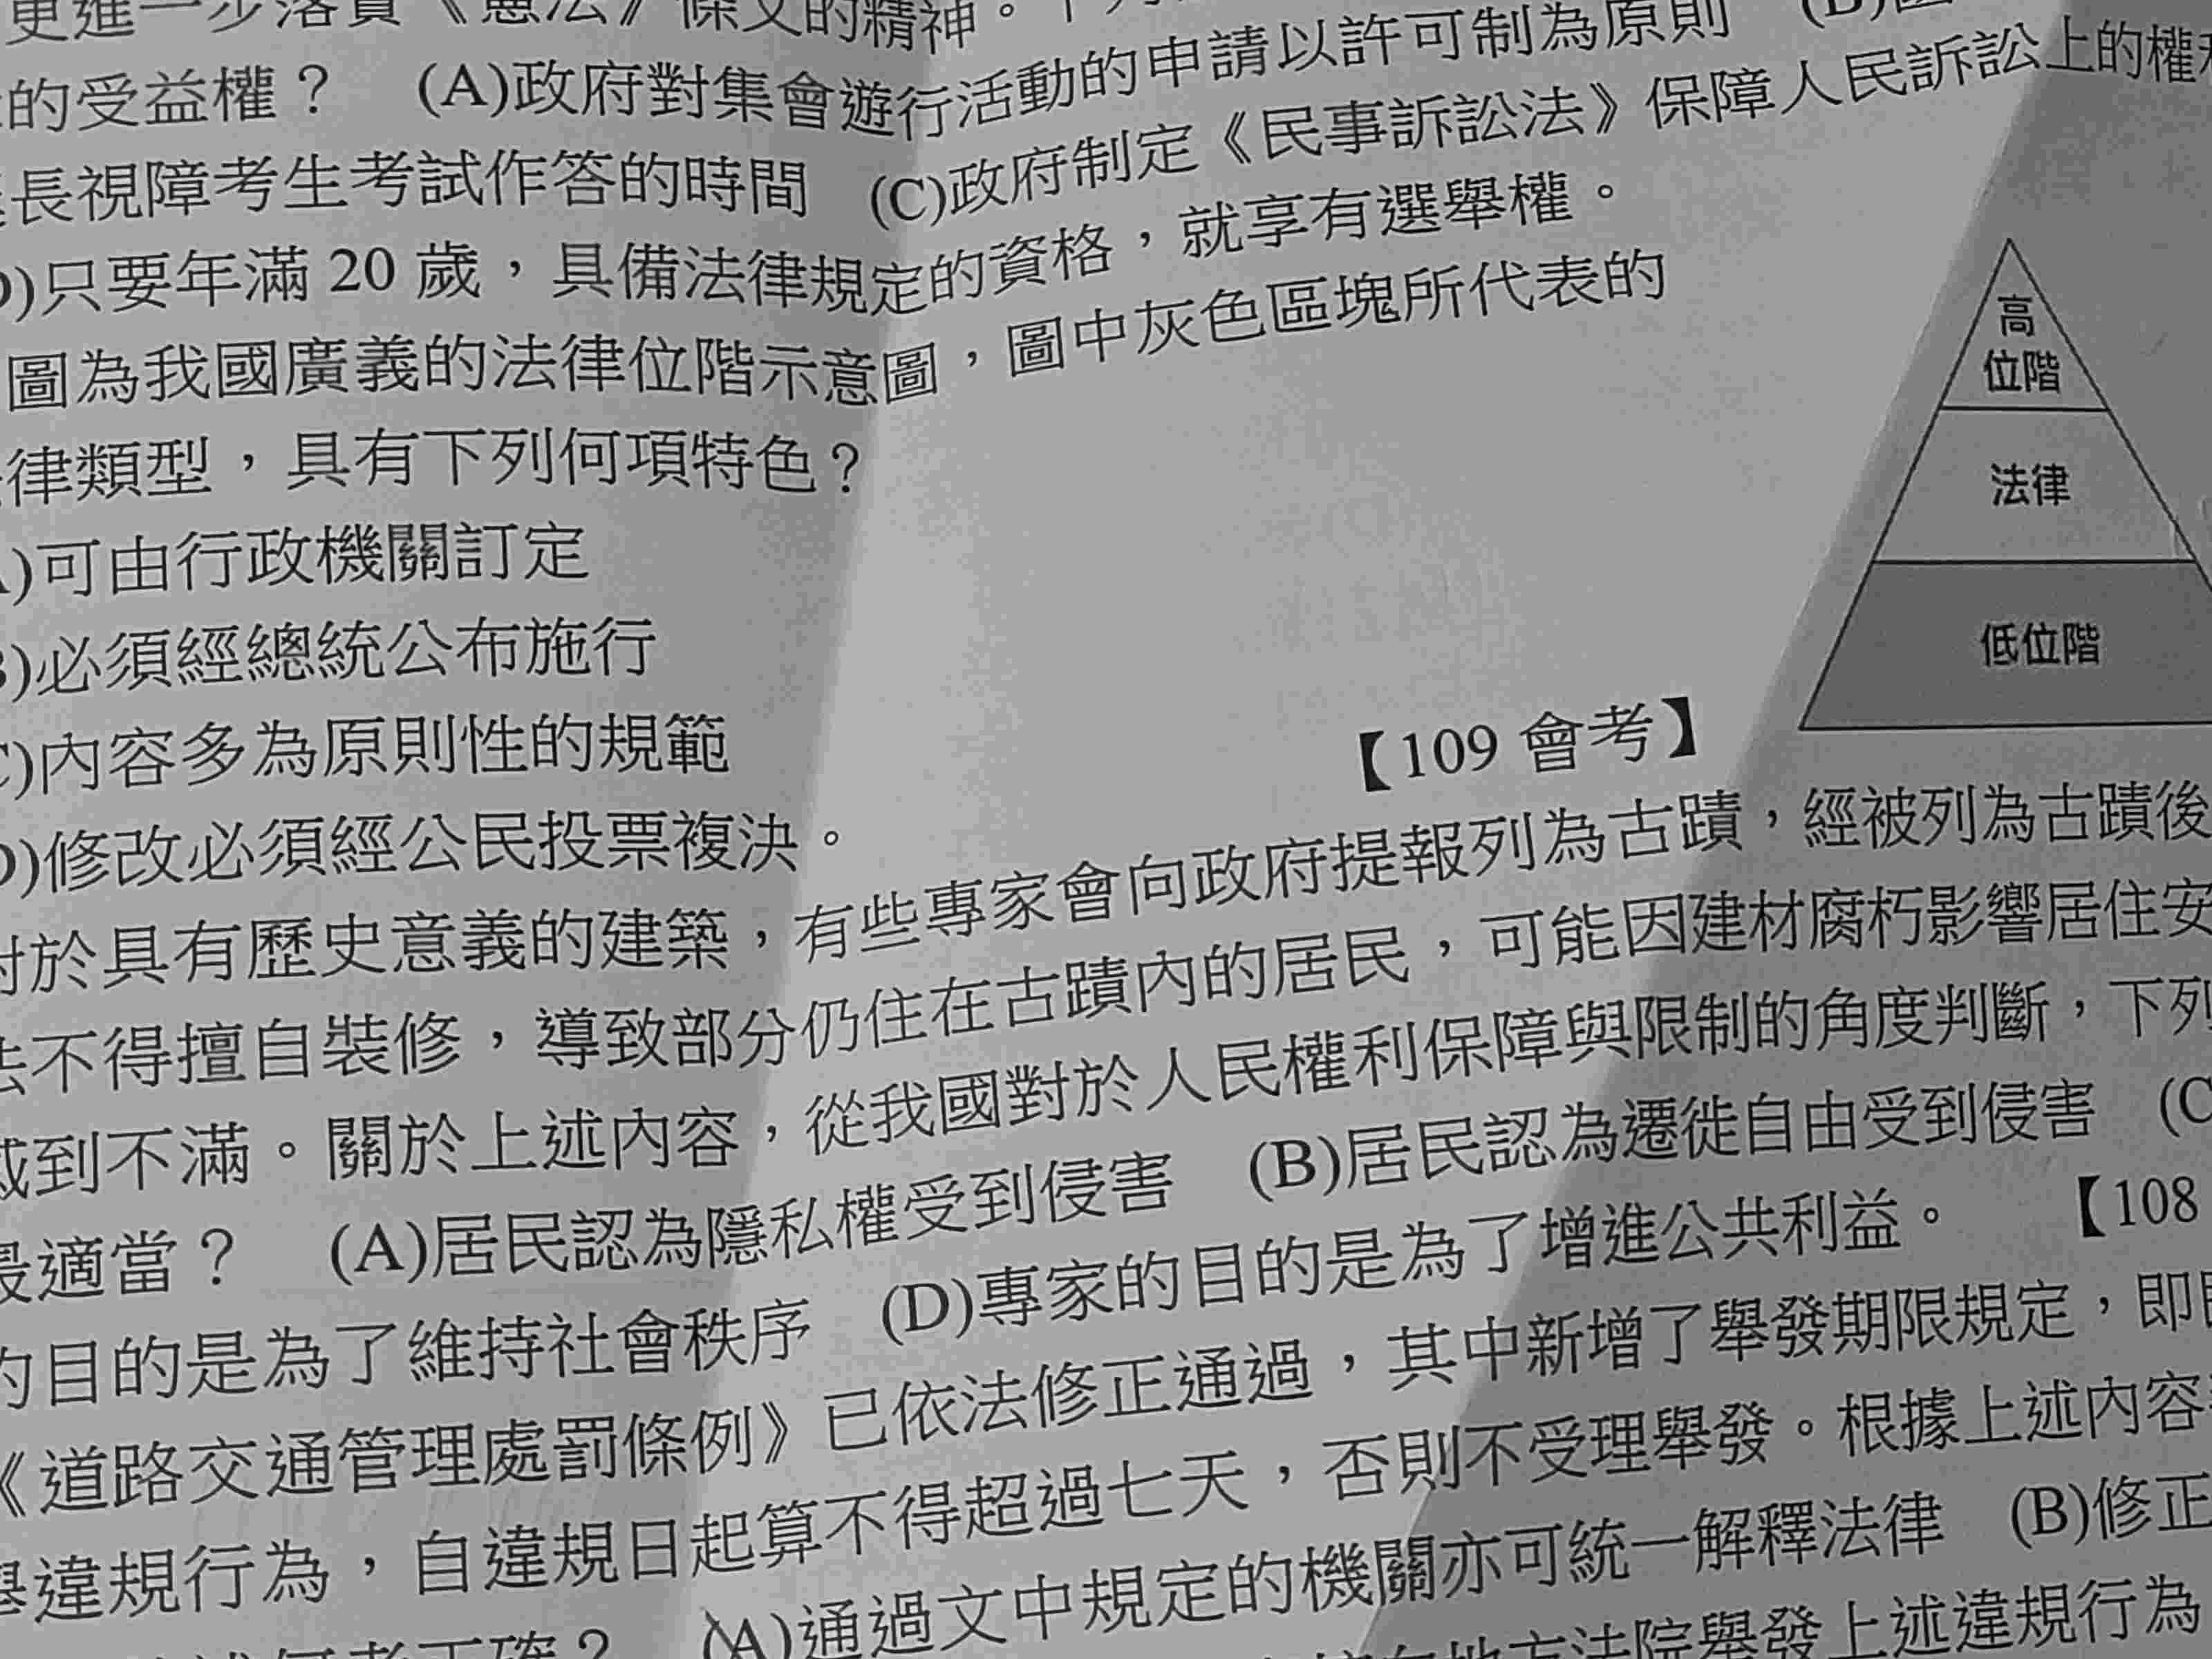 更進一步落實《憲法》條文的精神。
的受益權？ (A)政府對集會遊行活動的申請以許可制為原則 (B)
長視障考生考試作答的時間 (C)政府制定《民事訴訟法》保障人民訴訟上的權
)只要年滿 20 歲，具備法律規定的資格，就享有選舉權。
圖為我國廣義的法律位階示意圖，圖中灰色區塊所代表的
律類型，具有下列何項特色？
)可由行政機關訂定
)必須經總統公布施行
)內容多為原則性的規範
)修改必須經公民投票複決。
【109 會考】
高
位階
法律
低位階
對於具有歷史意義的建築，有些專家會向政府提報列為古蹟，經被列為古蹟後
法不得擅自裝修，導致部分仍住在古蹟內的居民，可能因建材腐朽影響居住安
感到不滿。關於上述內容，從我國對於人民權利保障與限制的角度判斷，下列
最適當？ (A)居民認為隱私權受到侵害 (B)居民認為遷徙自由受到侵害 (C
的目的是為了維持社會秩序 (D)專家的目的是為了增進公共利益。 【108
《道路交通管理處罰條例》已依法修正通過，其中新增了舉發期限規定，即
舉違規行為，自違規日起算不得超過七天，否則不受理舉發。根據上述內容
何者正確？ (A)通過文中規定的機關亦可統一解釋法律 (B)修正
地方法院舉發上述違規行為